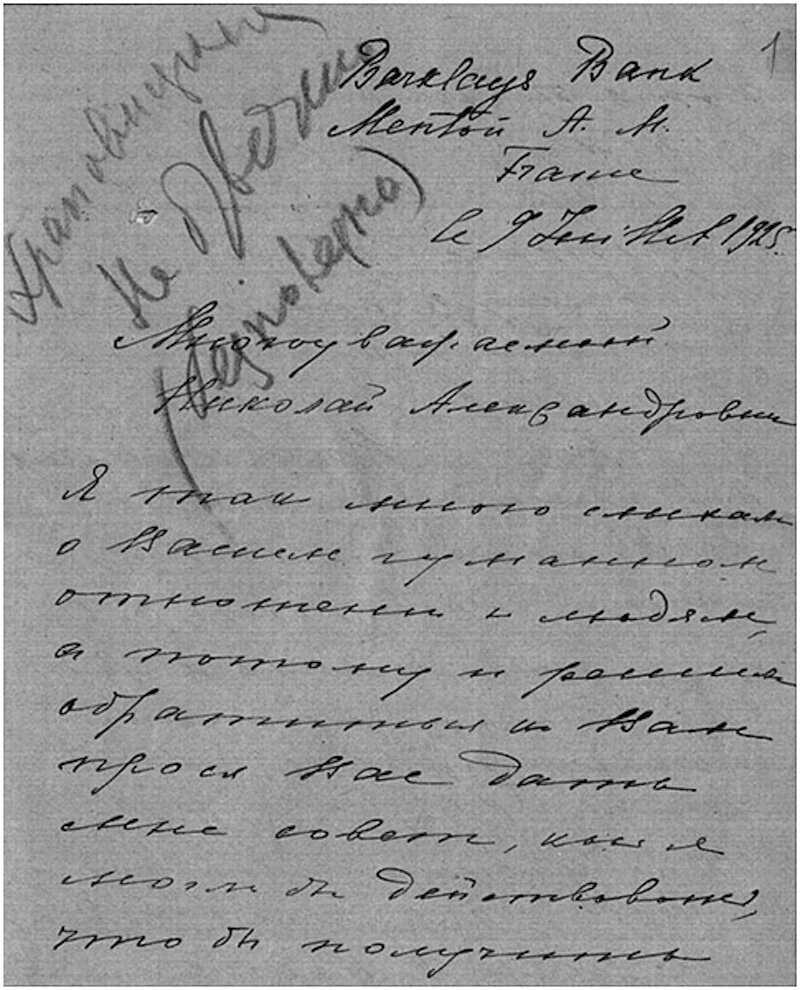 1
Barklays Bank
Menton A. M.
France
le 9 Juillet 1925.
Не
Многоуважаемый
Николай Александрович
Я так много слыхал
о Вашем гуманном
отношении к людям,
а потому и решил
обратиться к Вам
прося Вас дать
мне совет, как я
могли бы действовать,
что бы получить